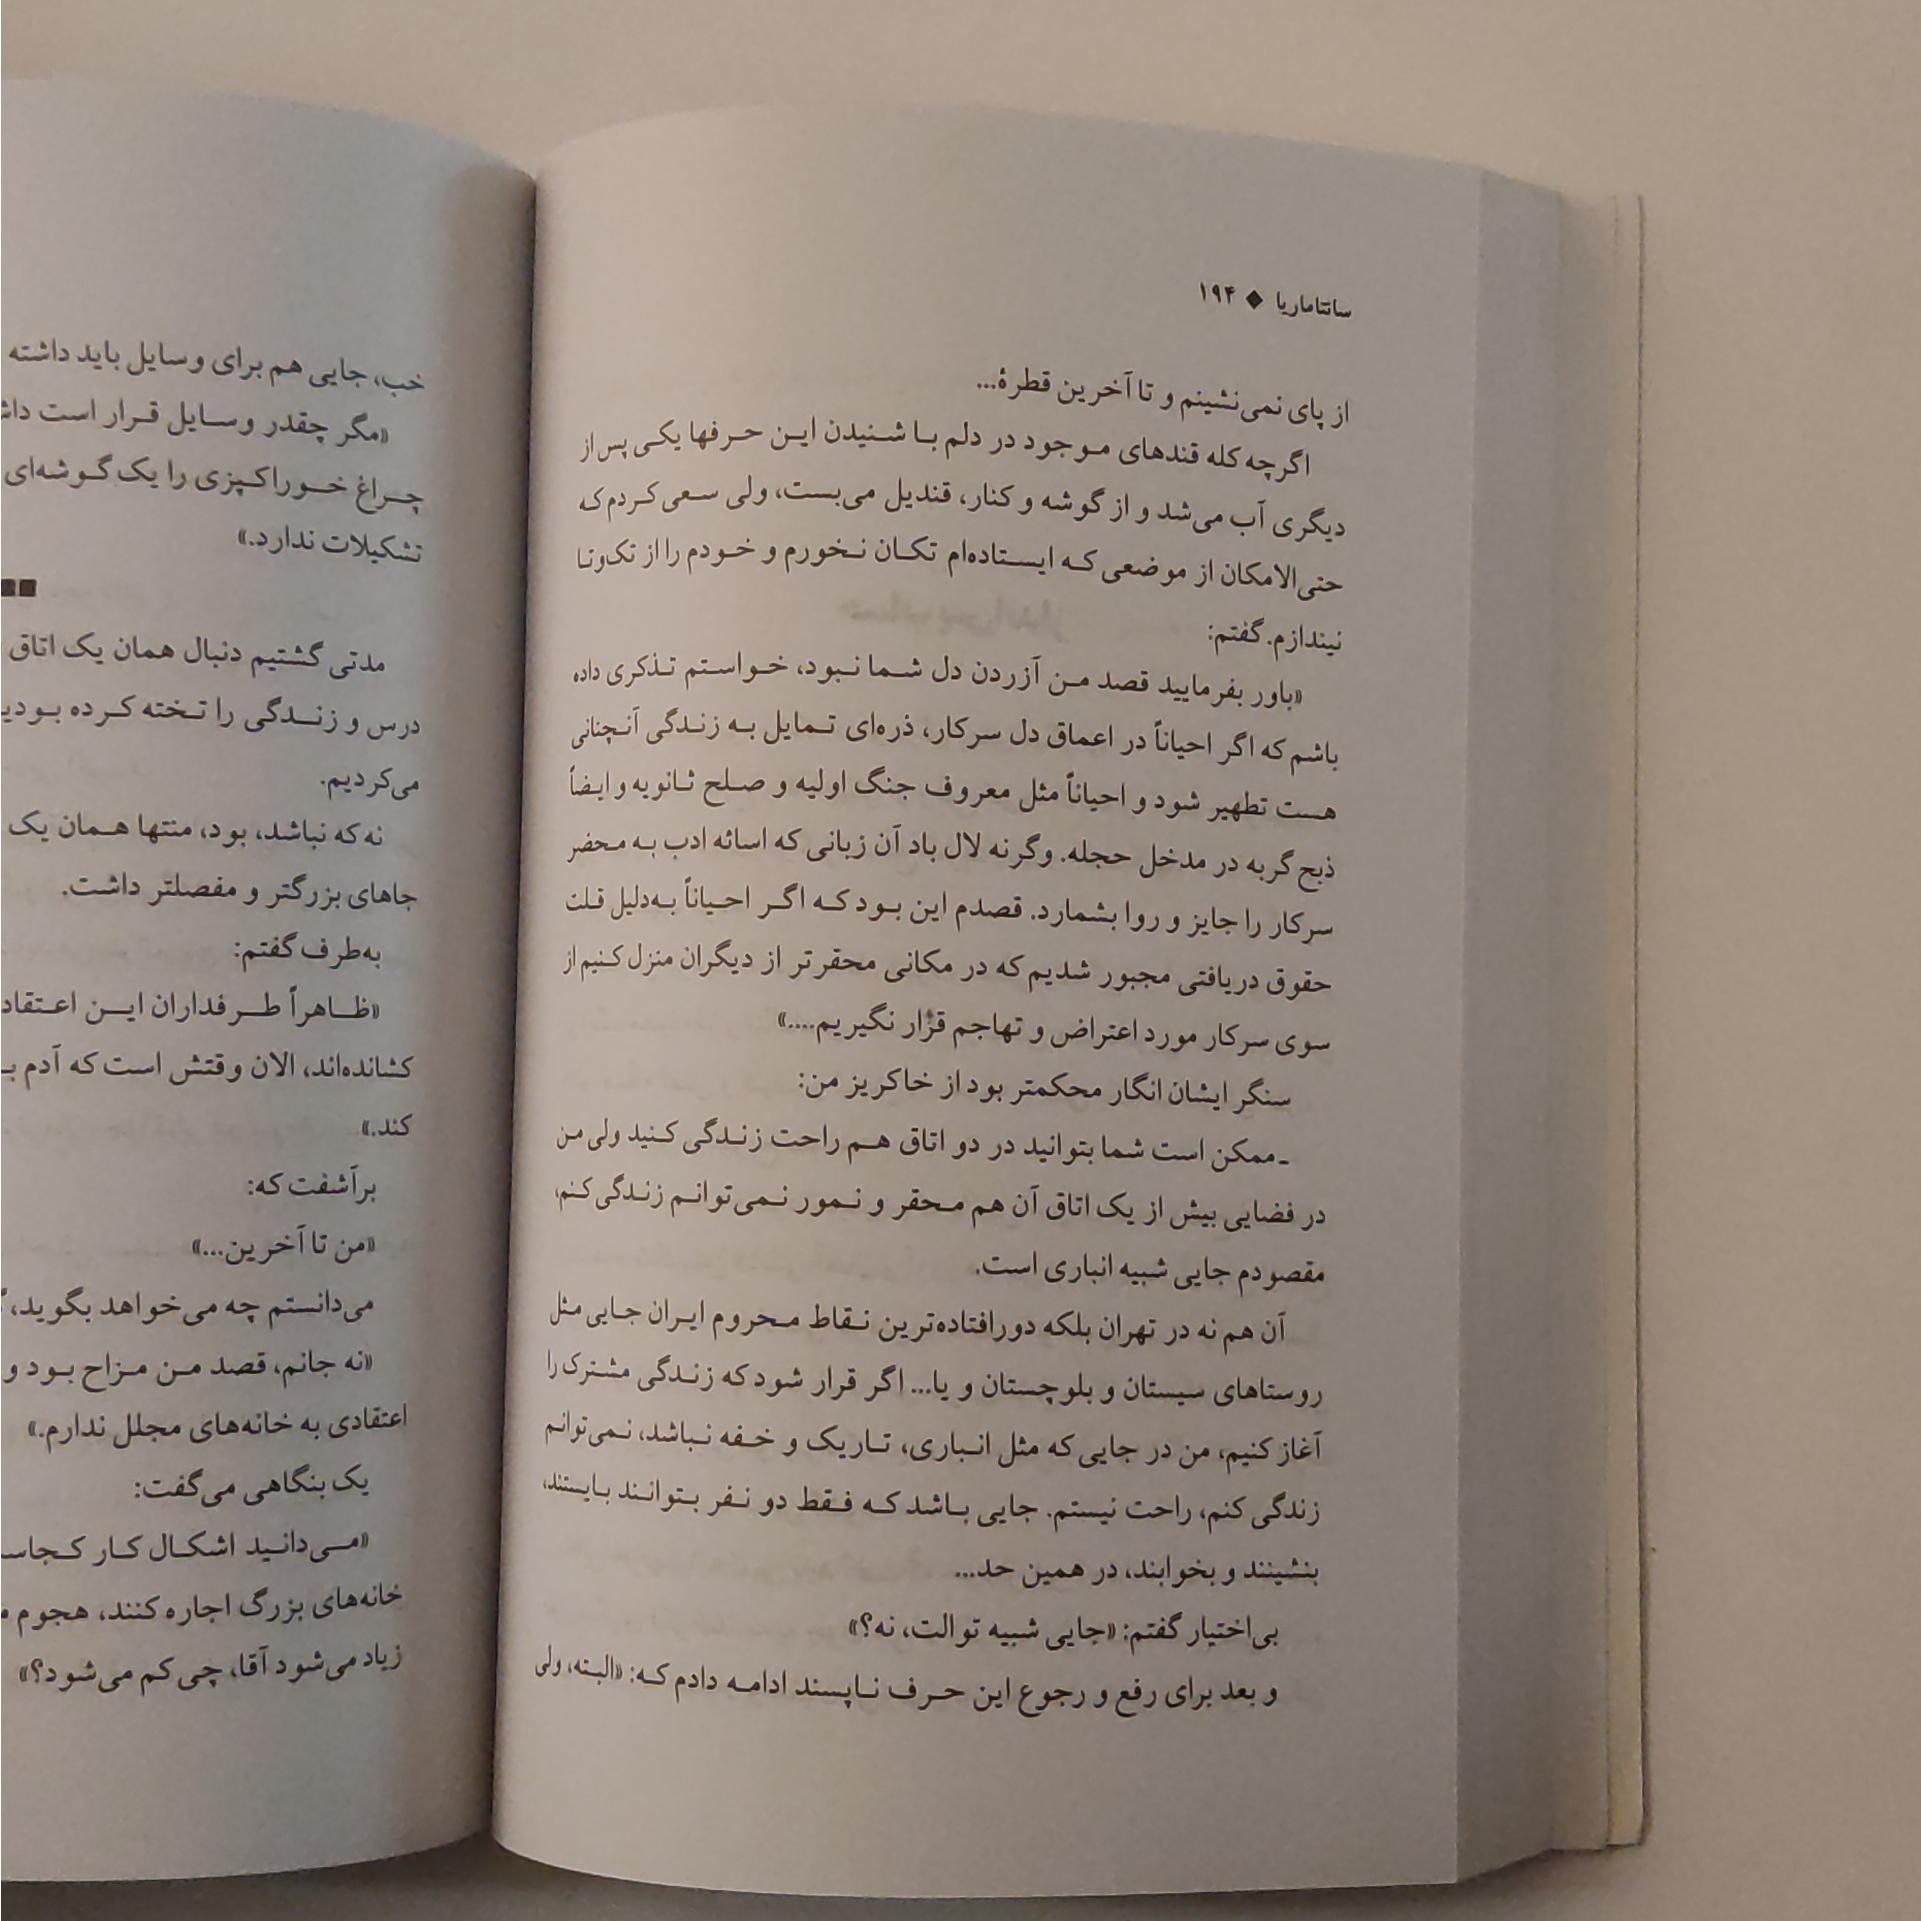 سانتاماریا ◆ ۱۹۴
از پای نمی‌نشینم و تا آخرین قطرهٔ...
اگرچه کله قندهای موجود در دلم با شنیدن این حرفها یکی پس از
دیگری آب می‌شد و از گوشه و کنار، قندیل می‌بست، ولی سعی کردم که
حتی‌الامکان از موضعی که ایستاده‌ام تکان نخورم و خودم را از تک‌وتا
نیندازم. گفتم:
«باور بفرمایید قصد من آزردن دل شما نبود، خواستم تذکری داده
باشم که اگر احیاناً در اعماق دل سرکار، ذره‌ای تمایل به زندگی آنچنانی
هست تطهیر شود و احیاناً مثل معروف جنگ اولیه و صلح ثانویه و ایضاً
ذبح گربه در مدخل حجله. وگرنه لال باد آن زبانی که اسائه ادب به محضر
سرکار را جایز و روا بشمارد. قصدم این بود که اگر احیاناً به‌دلیل قلت
حقوق دریافتی مجبور شدیم که در مکانی محقرتر از دیگران منزل کنیم از
سوی سرکار مورد اعتراض و تهاجم قرار نگیریم....»
سنگر ایشان انگار محکمتر بود از خاکریز من:
ـ ممکن است شما بتوانید در دو اتاق هم راحت زندگی کنید ولی من
در فضایی بیش از یک اتاق آن هم محقر و نمور نمی‌توانم زندگی کنم،
مقصودم جایی شبیه انباری است.
آن هم نه در تهران بلکه دورافتاده‌ترین نقاط محروم ایران جایی مثل
روستاهای سیستان و بلوچستان و یا... اگر قرار شود که زندگی مشترک را
آغاز کنیم، من در جایی که مثل انباری، تاریک و خفه نباشد، نمی‌توانم
زندگی کنم، راحت نیستم. جایی باشد که فقط دو نفر بتوانند بایستند،
بنشینند و بخوابند، در همین حد...
بی‌اختیار گفتم: «جایی شبیه توالت، نه؟»
و بعد برای رفع و رجوع این حرف ناپسند ادامه دادم که: «البته، ولی
خب، جایی هم برای وسایل باید داشته
«مگر چقدر وسایل قرار است
چراغ خوراکپزی را یک گوشه‌ای
تشکیلات ندارد.»
مدتی گشتیم دنبال همان یک اتاق
درس و زندگی را تخته کرده
می‌کردیم.
نه که نباشد، بود، منتها همان یک
جاهای بزرگتر و مفصلتر داشت.
به‌طرف گفتم:
«ظاهراً طرفداران این
کشانده‌اند، الان وقتش است که آدم
کند.»
برآشفت که:
«من تا آخرین...»
می‌دانستم چه می‌خواهد بگوید،
«نه جانم، قصد من مزاح بود و
اعتقادی به خانه‌های مجلل ندارم.»
یک بنگاهی می‌گفت:
«می‌دانید اشکال کار
خانه‌های بزرگ اجاره کنند، هجوم
زیاد می‌شود آقا، چی کم می‌شود؟»